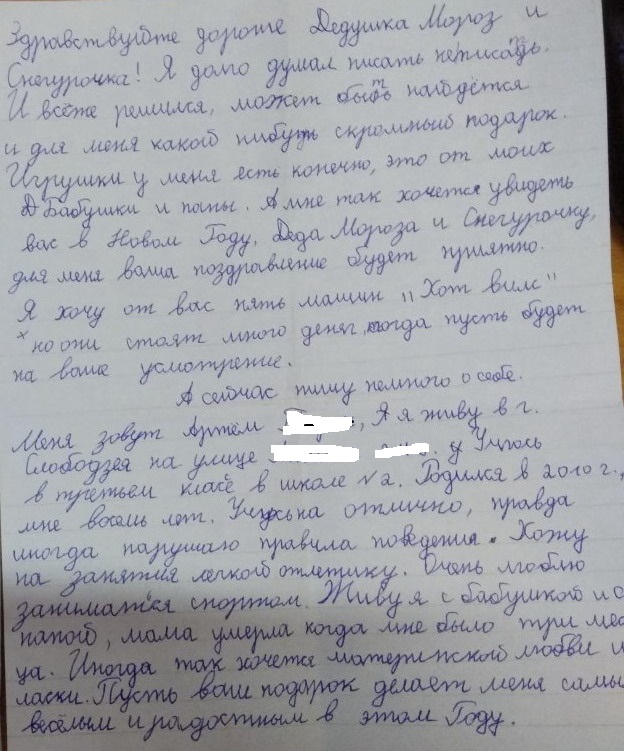 Здравствуйте дорогие Дедушка Мороз и
Снегурочка! Я долго думал писать неписать.
И всёже решился, может быть найдётся
и для меня какой нибуть скромный подарок.
Игрушки у меня есть конечно, это от моих
Бабушки и папы. А мне так хочется увидеть
вас в Новом Году, Деда Мороза и Снегурочку,
для меня ваша поздравление будет приятно.
Я хочу от вас пять машин "Хот вилс"
но они стоят много денег, тогда пусть будет
на ваше усмотрение.
А сейчас пишу немного о себе.
Меня зовут Артём , Я я живу в г.
Слободзея на улице у Учюсь
в третьем класе в школе №2. Родился в 2010 г.,
мне восемь лет. Учусь на отлично, правда
иногда нарушаю правила поведения. Хожу
на занятия легкой отлетику. Очень люблю
заниматся спортом. Живу я с бабушкой и с
папой, мама умерла когда мне было три меся
ца. Иногда так хочется материнской любви и
ласки. Пусть ваш подарок делает меня самы
весёлым и радостным в этом Году.